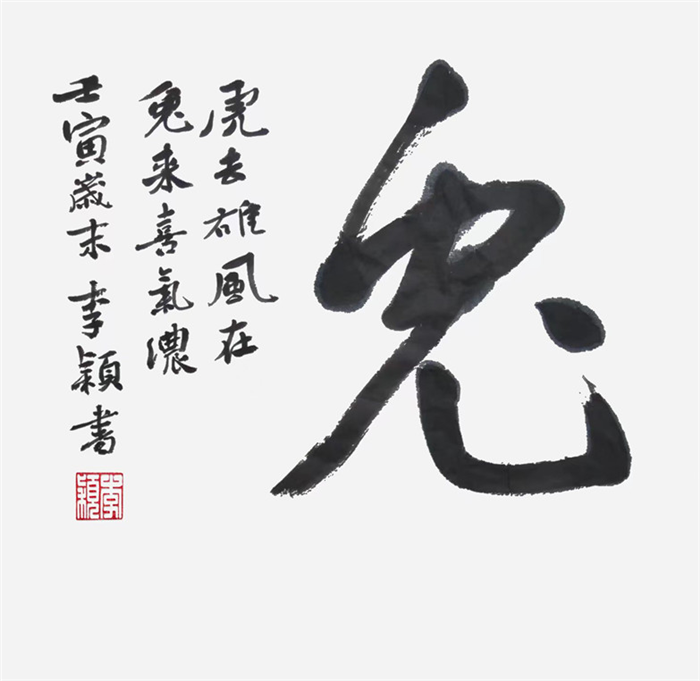 兔
虎去雄風在
兔来喜氣濃
壬寅歲末 李穎書
李穎